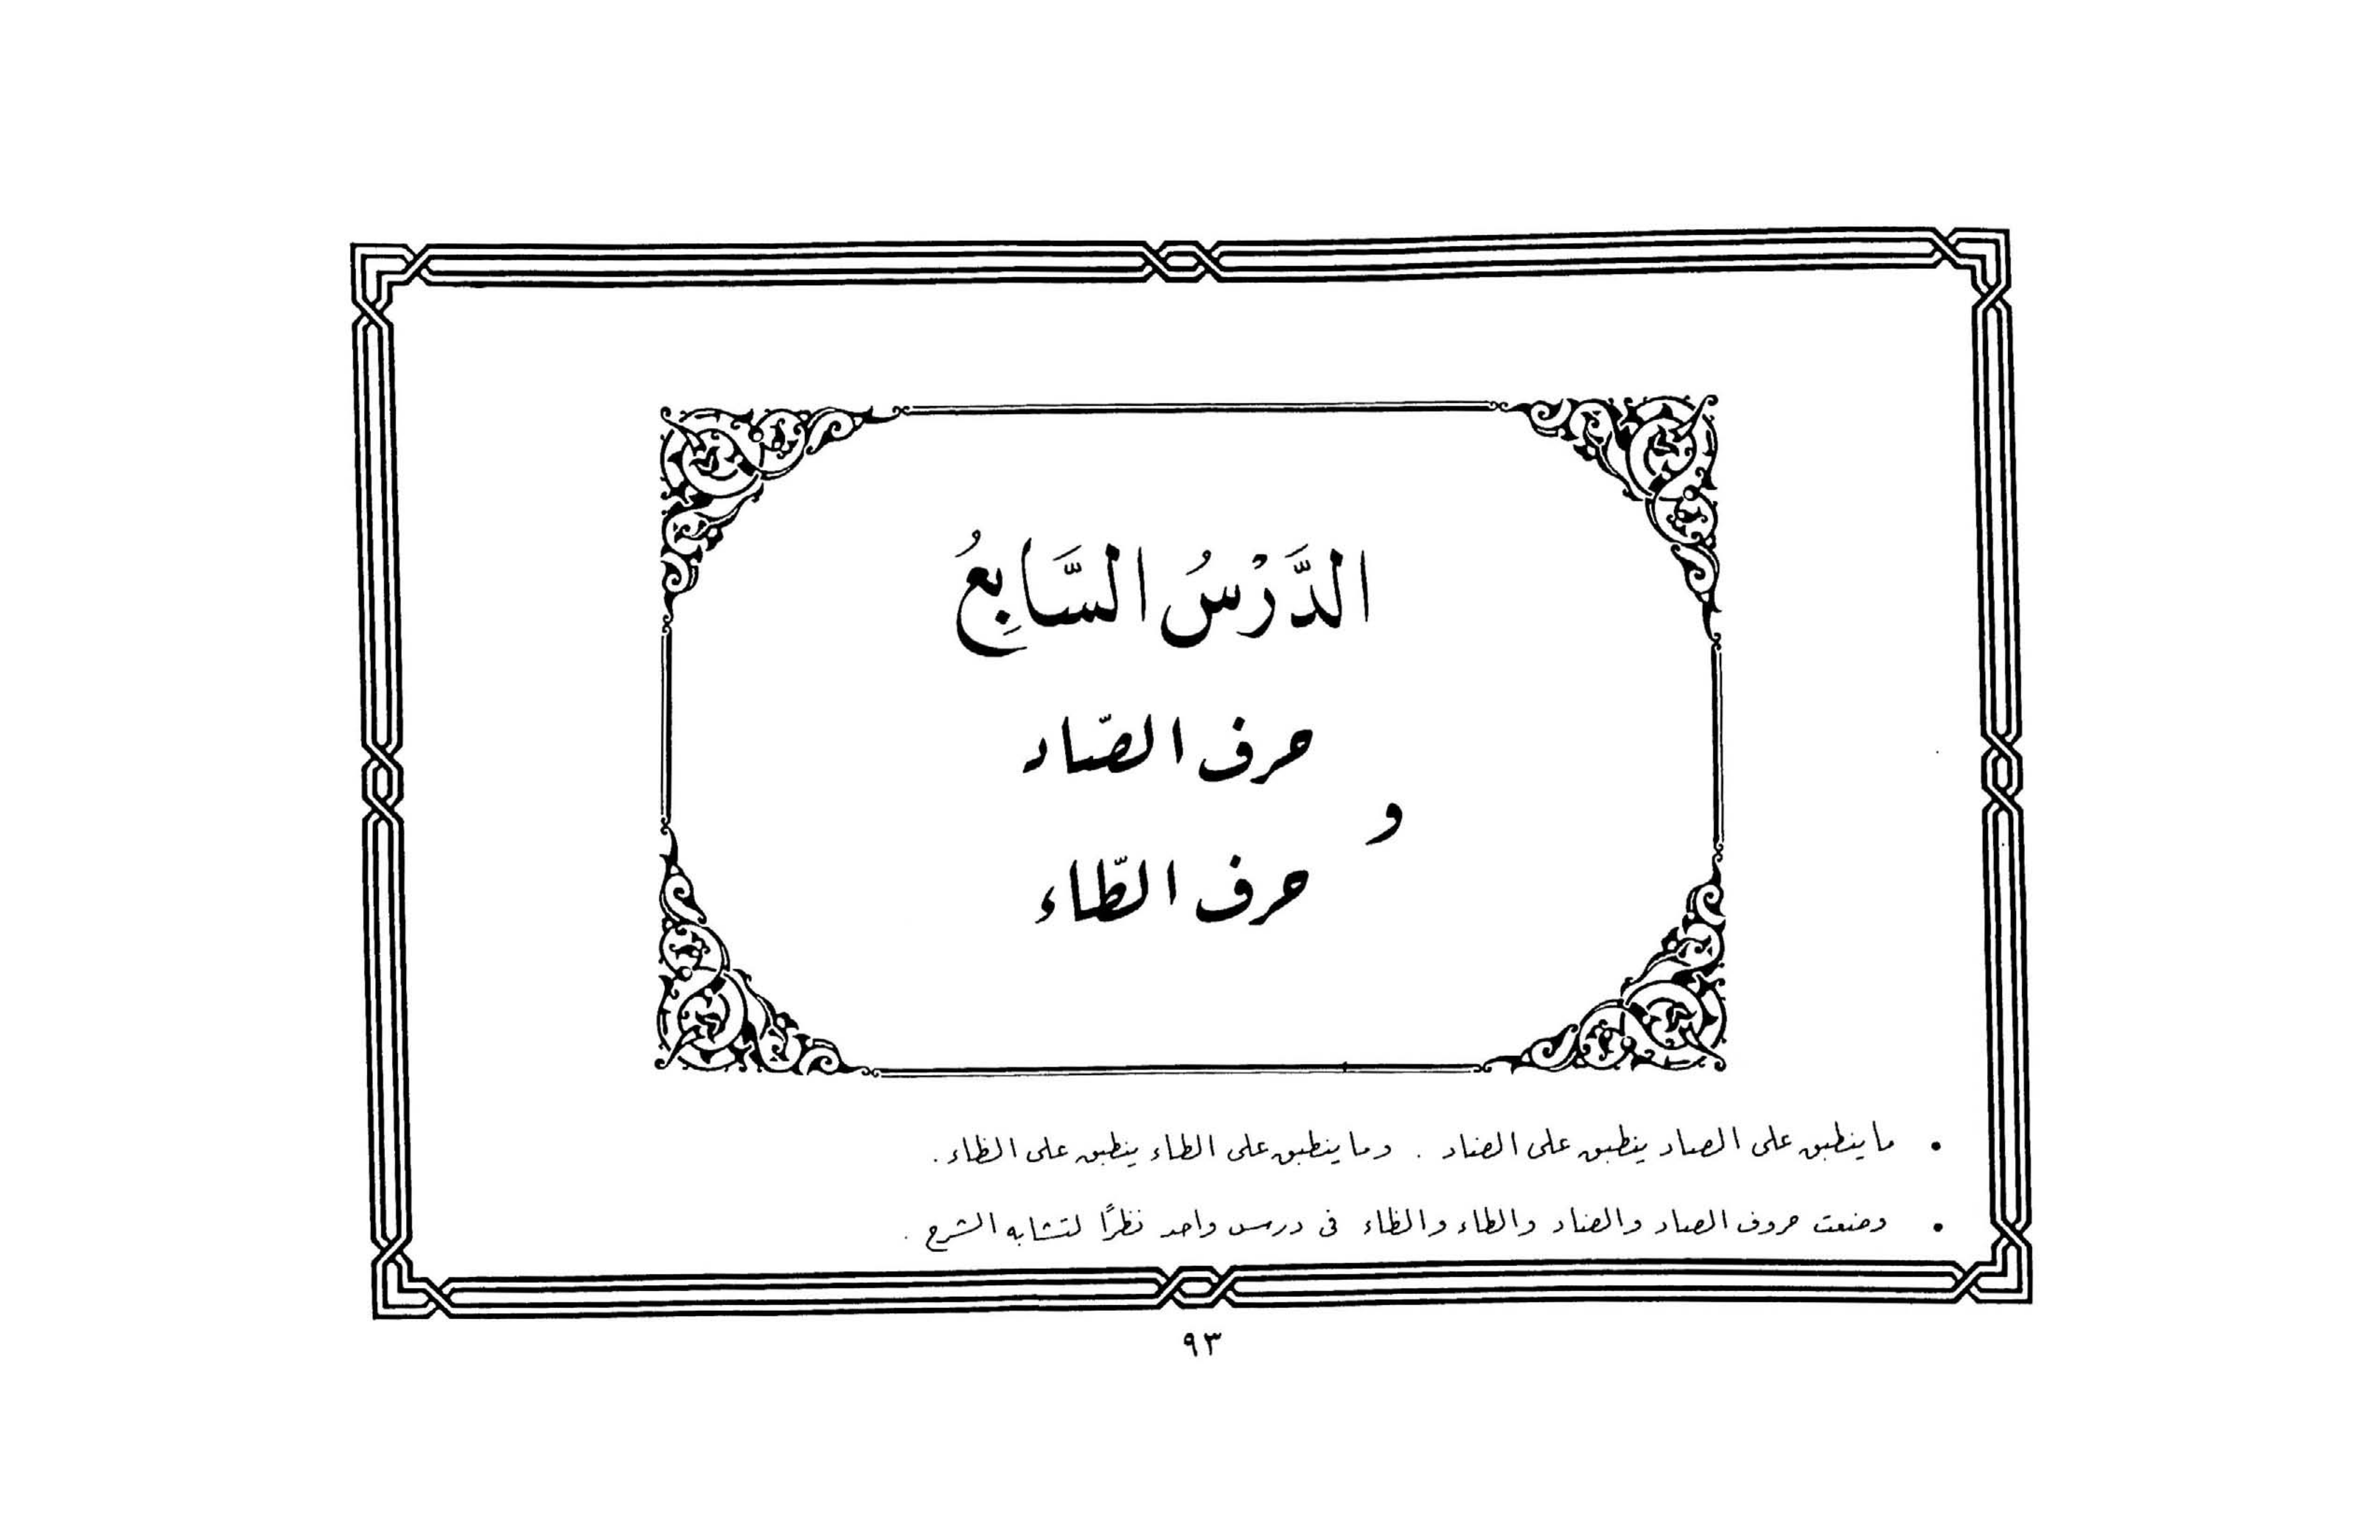 الدَّرْسُ السَّابِعُ
حرف الصّاد
و
حرف الطّاء
• ما ينطبق على الصاد ينطبق على الضاد . وما ينطبق على الطاء ينطبق على الظاء .
• وضعت حروف الصاد والضاد والطاء والظاء فى درس واحد نظرًا لتشابه الشرح .
٩٣